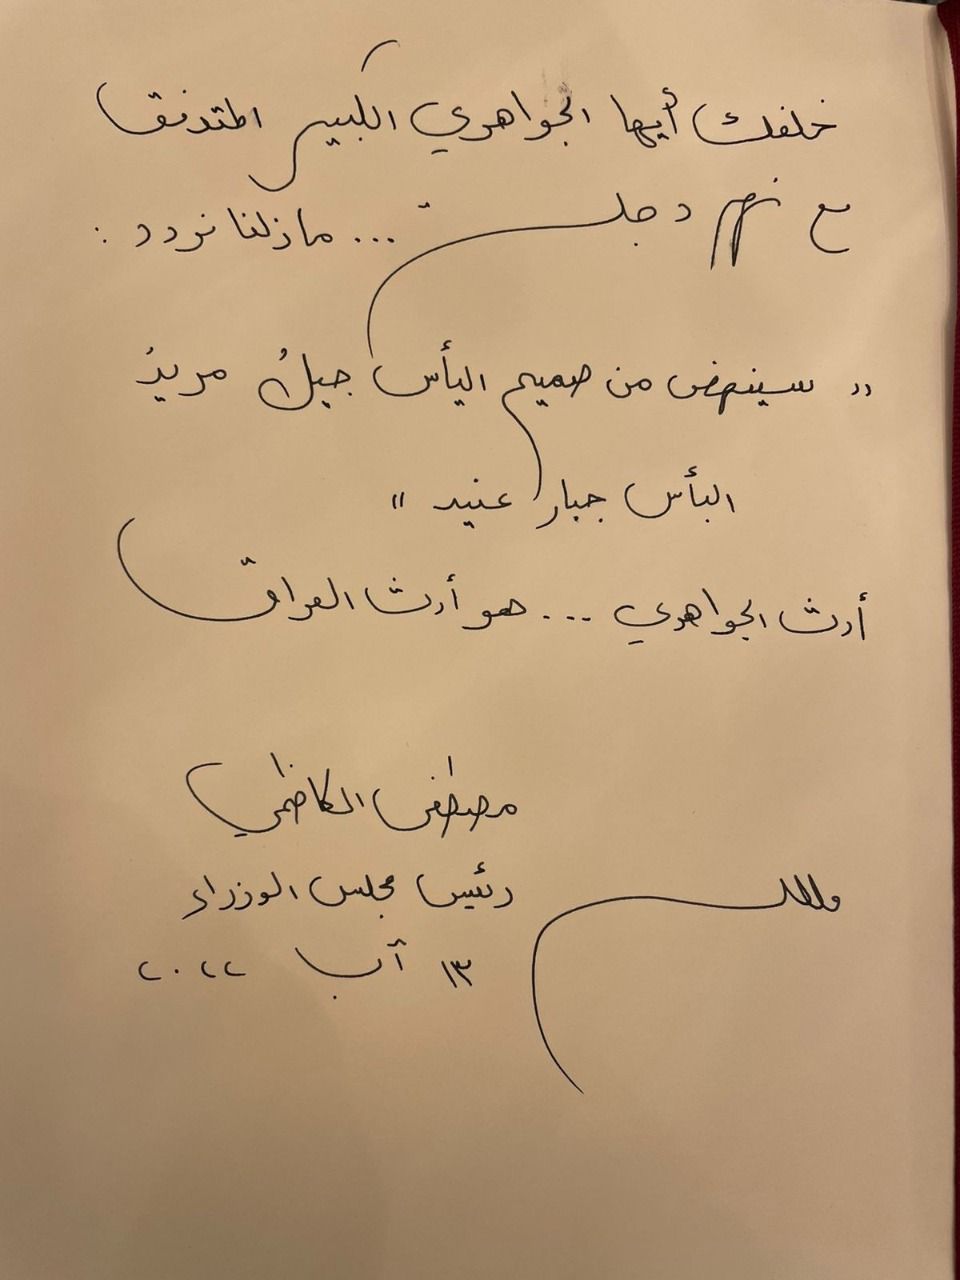 خلفك أيها الجواهري الكبير المتدفق
مع نهر دجلة ... مازلنا نردد :
" سينهض من صميم اليأس جيلٌ مريدُ
البأس جبار عنيد "
أرث الجواهري ... هو أرث العراق
مصطفى الكاظمي
رئيس مجلس الوزراء
١٣ آب ٢٠٢٢